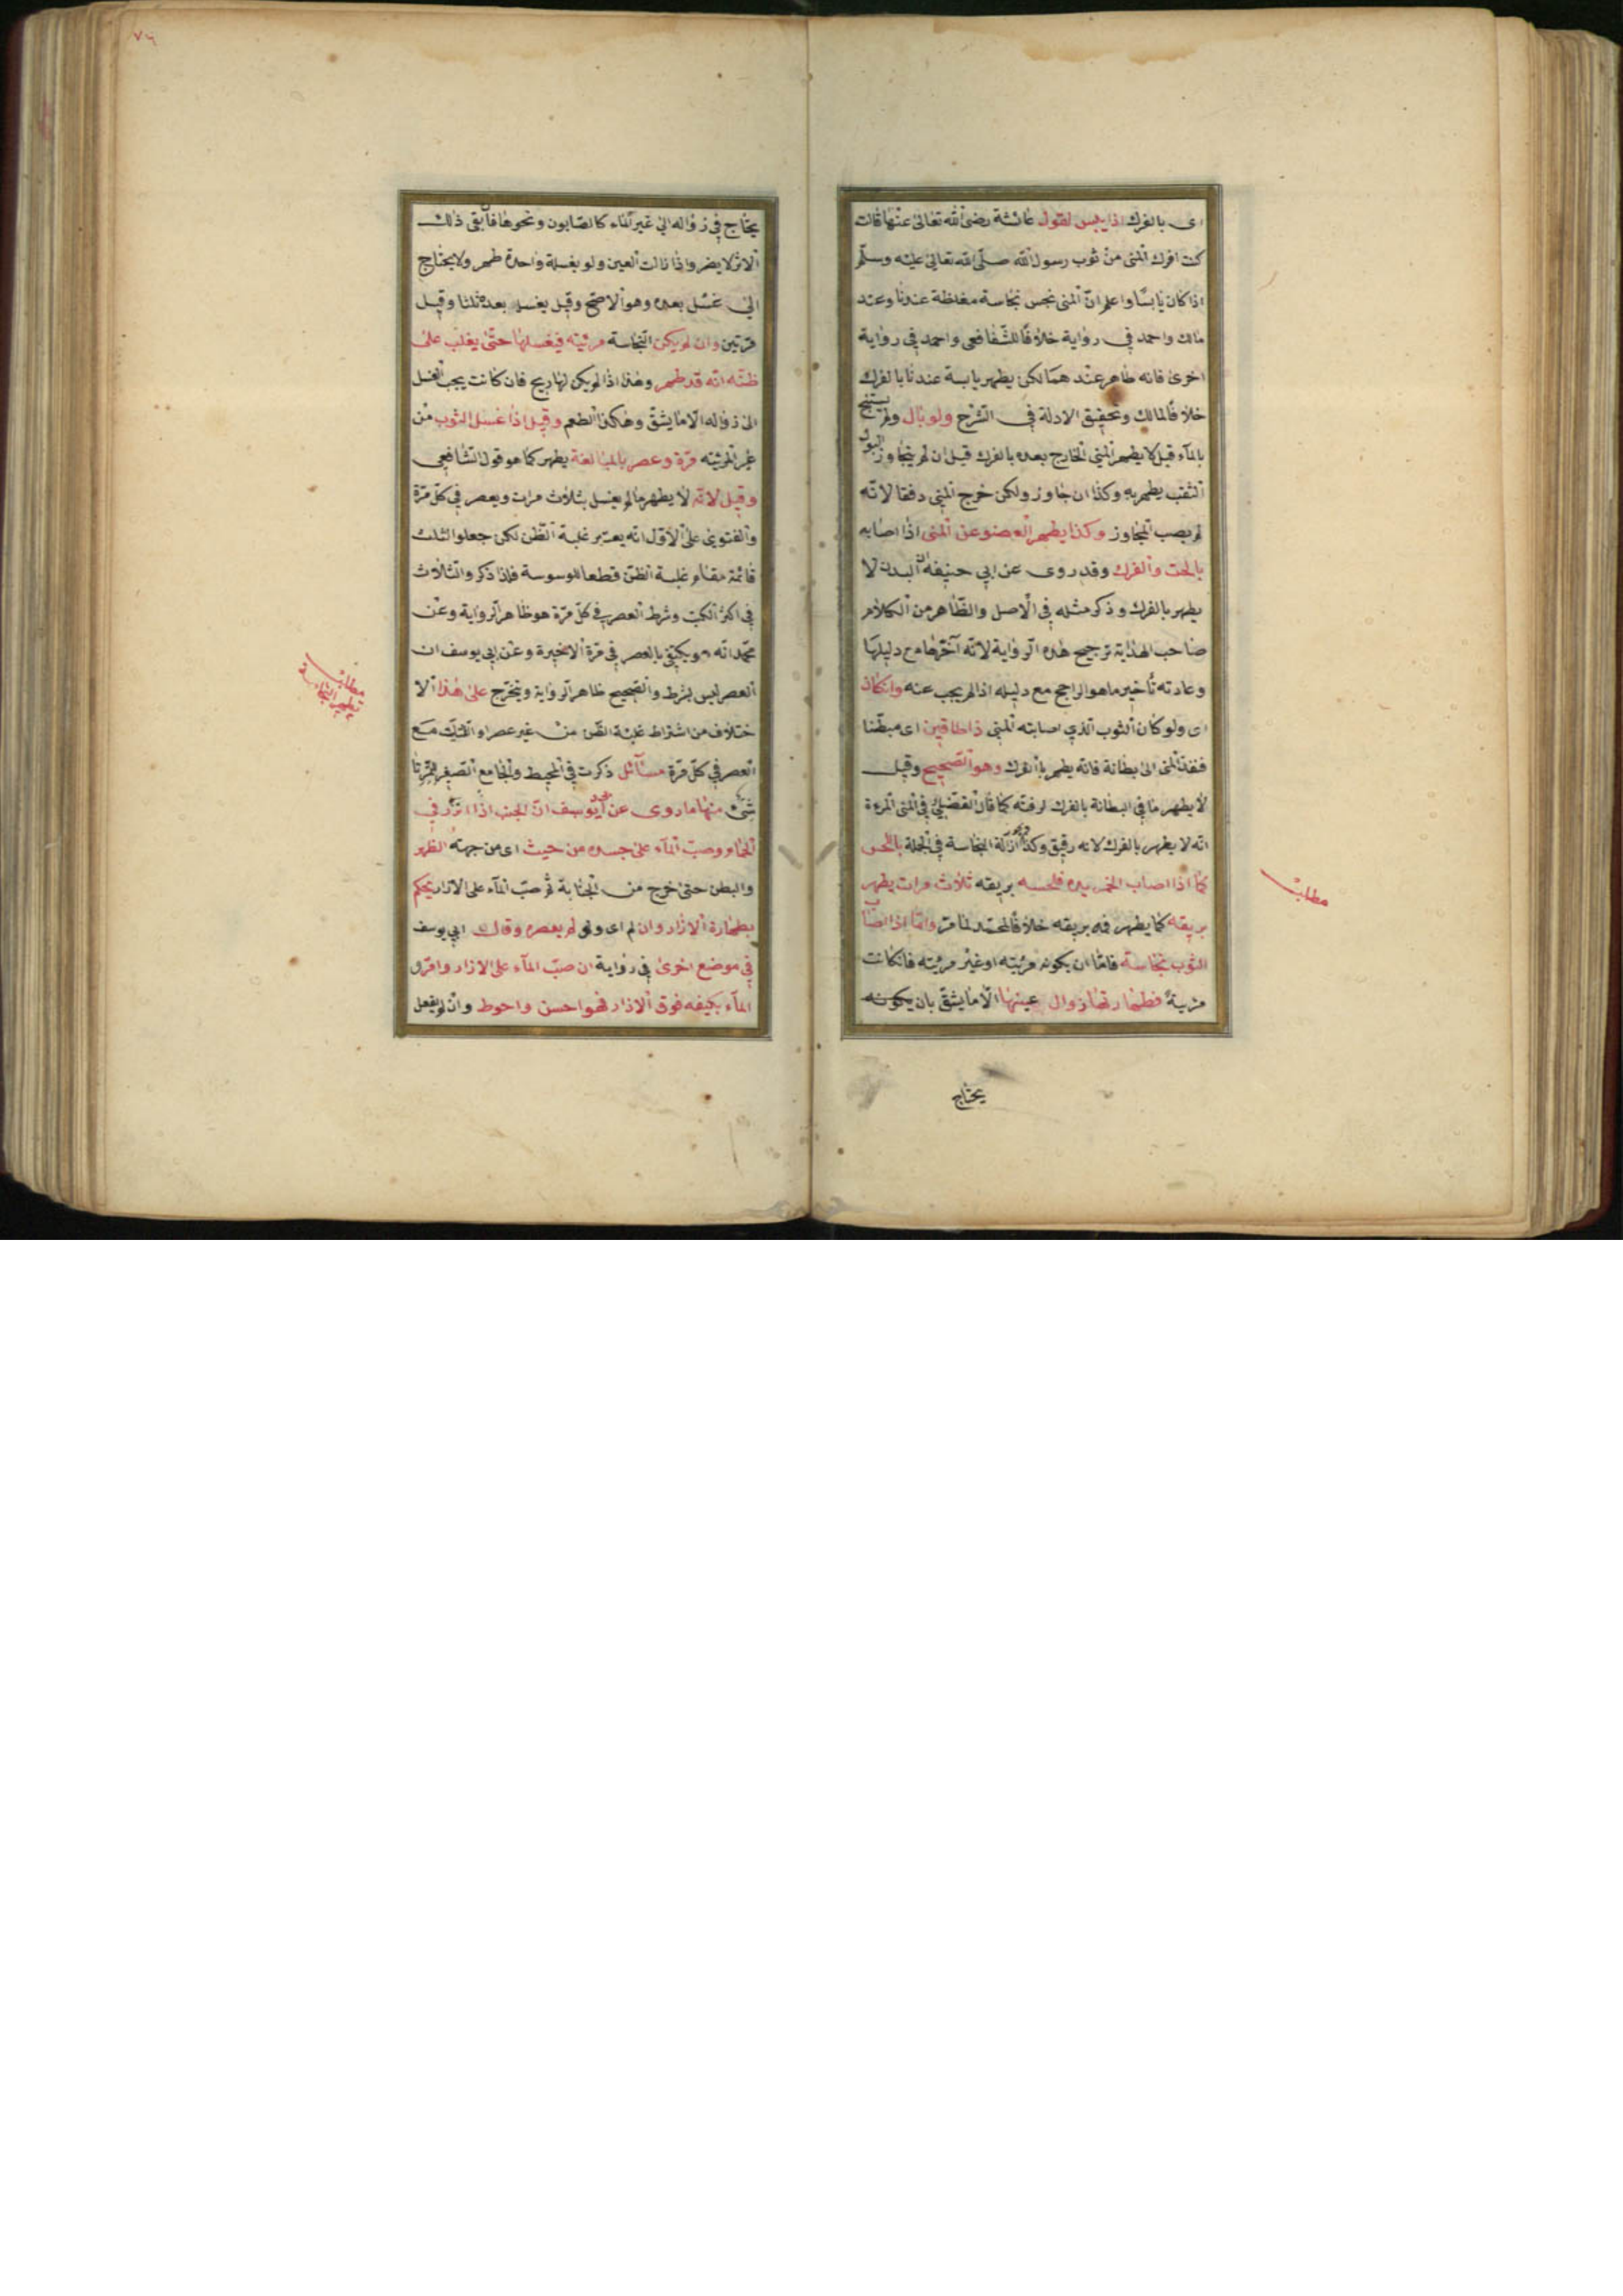 اى بالفرك اذا يبس لقول عائشة رضى الله تعالى عنها قالت
كنت افرك المنى من ثوب رسول الله صلّى الله تعالى عليه وسلّم
اذا كان يابسًا واعلم انّ المنى نجس نجاسة مغلظة عندنا وعند
مالك واحمد فى رواية خلافًا للشّفافعى واحمد في رواية
اخرى فانه طاهر عند هما لكن يطهر يابسة عندنا بالفرك
خلافًا لمالك وتحقيق الادلة في الشّرح ولو بال ولم يستنج
بالمآء قيل لا يطهر المني الخارج بعده بالفرك قيل ان لم يتجاوز البول
الثقب يطهر به وكذا ان جاوز ولكن خرج المني دفقا لانّه
لم يصب المجاوز وكذا يطهر العضو عن المنى اذا اصابه
بالحت والفرك وقد روى عن ابي حنيفه ان البدن لا
يطهر بالفرك وذكر مثله في الاصل والظّاهر من الكلام
صاحب الهداية ترجيح هذه الرواية لانّه آخّرها مع دليلها
وعادته تأخير ما هو الراجح مع دليله اذا لم يجب عنه وان كان
اى ولو كان الثوب الّذي اصابته المنى ذا طاقين اى مبطّنا
فنفذ المنى الى بطانة فانه يطهر بالفرك وهو الصّحيح وقيل
لا يطهر ما في البطانة بالفرك لرقتّه كما قال الفضيلي في المنى المرءة
انّه لا يطهر بالفرك لانه رقيق وكذا ازالة النجاسة في الجملة بالّلحس
كما اذا اصاب الخمر يده فلحسه بريقه ثلاث مرات يطهر
بريقه كما يطهر فمه بريقه خلافًا لمحمّد لما مرّ وامّا اذا اصاب
الثوب نجاسة فامّا ان يكون مرئيّته او غير مرئيّته فان كانت
مرئية فطهارتها زوال عينها الّا ما يشقّ بان يكونه
يحتاج
مطلب
٧٦
يحتاج في زواله الى غير الماء كالصّابون ونحوها فان بقى ذلك
الاثر لا يضر واذا زالت العين ولو بغسلة واحدة طهر ولا يحتاج
الى غسل بعده وهو الاصحّ وقيل يغسل بعده ثلثا وقيل
مرّتين وان لم يكن النّجاسة مرئيّته فيغسلها حتّى يغلب على
ظنّه انّه قد طهر وهذا اذا لم يكن لها ريح فان كانت يجب الغسل
الى زواله الّا ما يشقّ وهكذا الطعم وقيل اذا غسل الثوب من
غير المرئيّته مرّة وعصر بالمبالغة يطهر كما هو قول الشّافعي
وقيل لانّه لا يطهر ما لم يغسل بثلاث مرات ويعصر في كلّ مرّة
والفتوى على الاوّل انّه يعتبر غلبة الظّن لكن جعلوا الثلث
قائمة مقام غلبة الظنّ قطعا للوسوسة فلذا ذكر والثّلاث
في اكثر الكتب وشرط العصر في كلّ مرّة هو ظاهر الرواية وعن
محمّد انّه ويكتفى بالعصر في مرّة الاخيرة وعن ابي يوسف ان
العصر ليس بشرط والصّحيح ظاهر الرواية ويتخرّج على هذا الا
ختلاف من اشتراط غلبة الظّن من غير عصر او التثليث مع
العصر في كلّ مرّة مسآئل ذكرت في المحيط والجامع الصّغير للتمرتا
شى منها ما روى عن ابى يوسف انّ الجنب اذا اتّزر في
الحمّام وصبّ المآء على جسده من حيث اى من جهته الظهر
والبطن حتى خرج من الجنابة ثمّ صبّ المآء على الازار يحكم
بطهارة الازار وان لم اى ولو لم يعصره وقال ابي يوسف
في موضع اخرى في رواية ان صبّ المآء على الازار وامّرّ
المآء بكيفه فوق الازار فهو احسن واحوط وان لم يفعل
مطلب
تطهير النجاسة